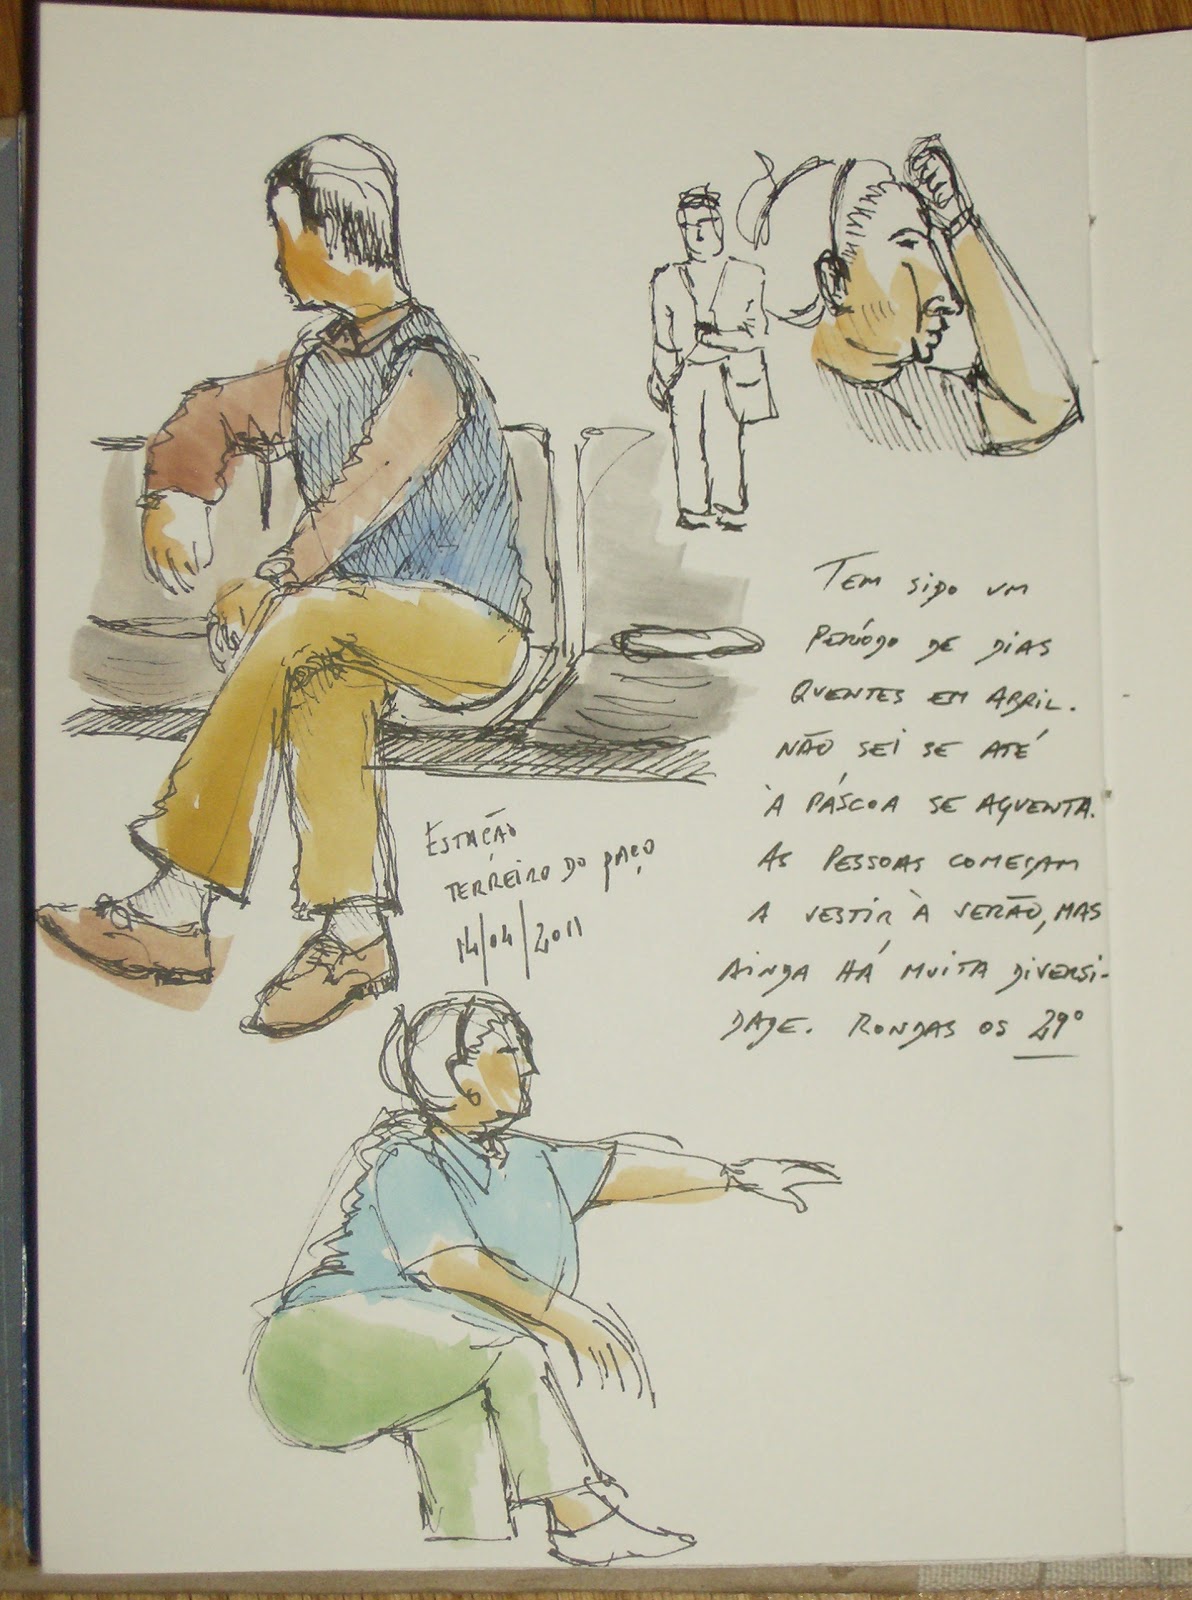 TEM SIDO UM
PERÍODO DE DIAS
QUENTES EM ABRIL.
NÃO SEI SE ATÉ
À PÁSCOA SE AGUENTA.
AS PESSOAS COMEÇAM
A VESTIR À VERÃO, MAS
AINDA HÁ MUITA DIVERSI-
DADE. RONDAS OS 29º
ESTAÇÃO
TERREIRO DO PAÇO
14/04/2011